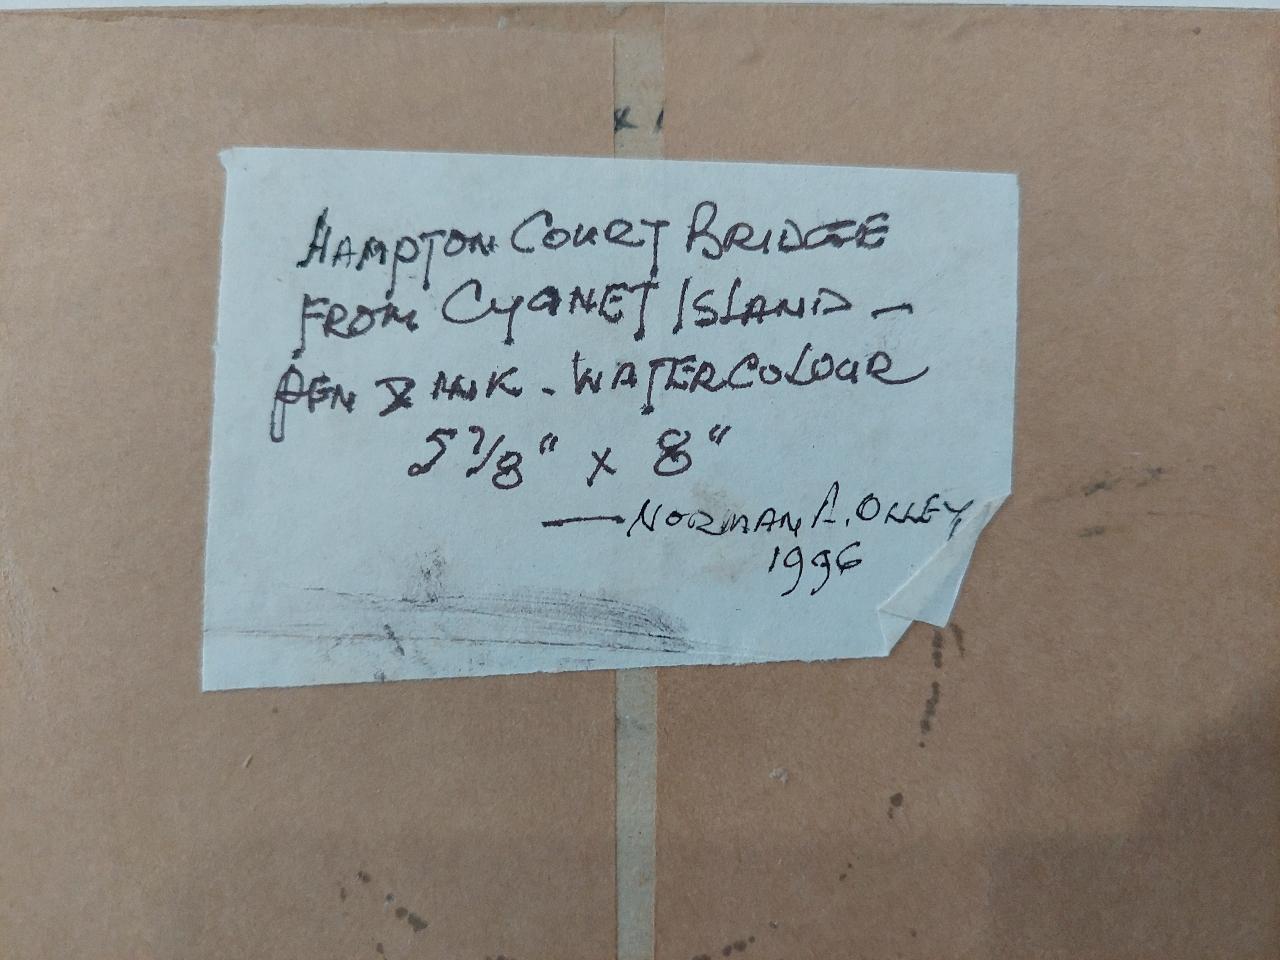 HAMPTON COURT BRIDGE
FROM CYGNET ISLAND -
PEN & INK - WATERCOLOUR
5 7/8" x 8"
— NORMAN A. OLLEY
1996